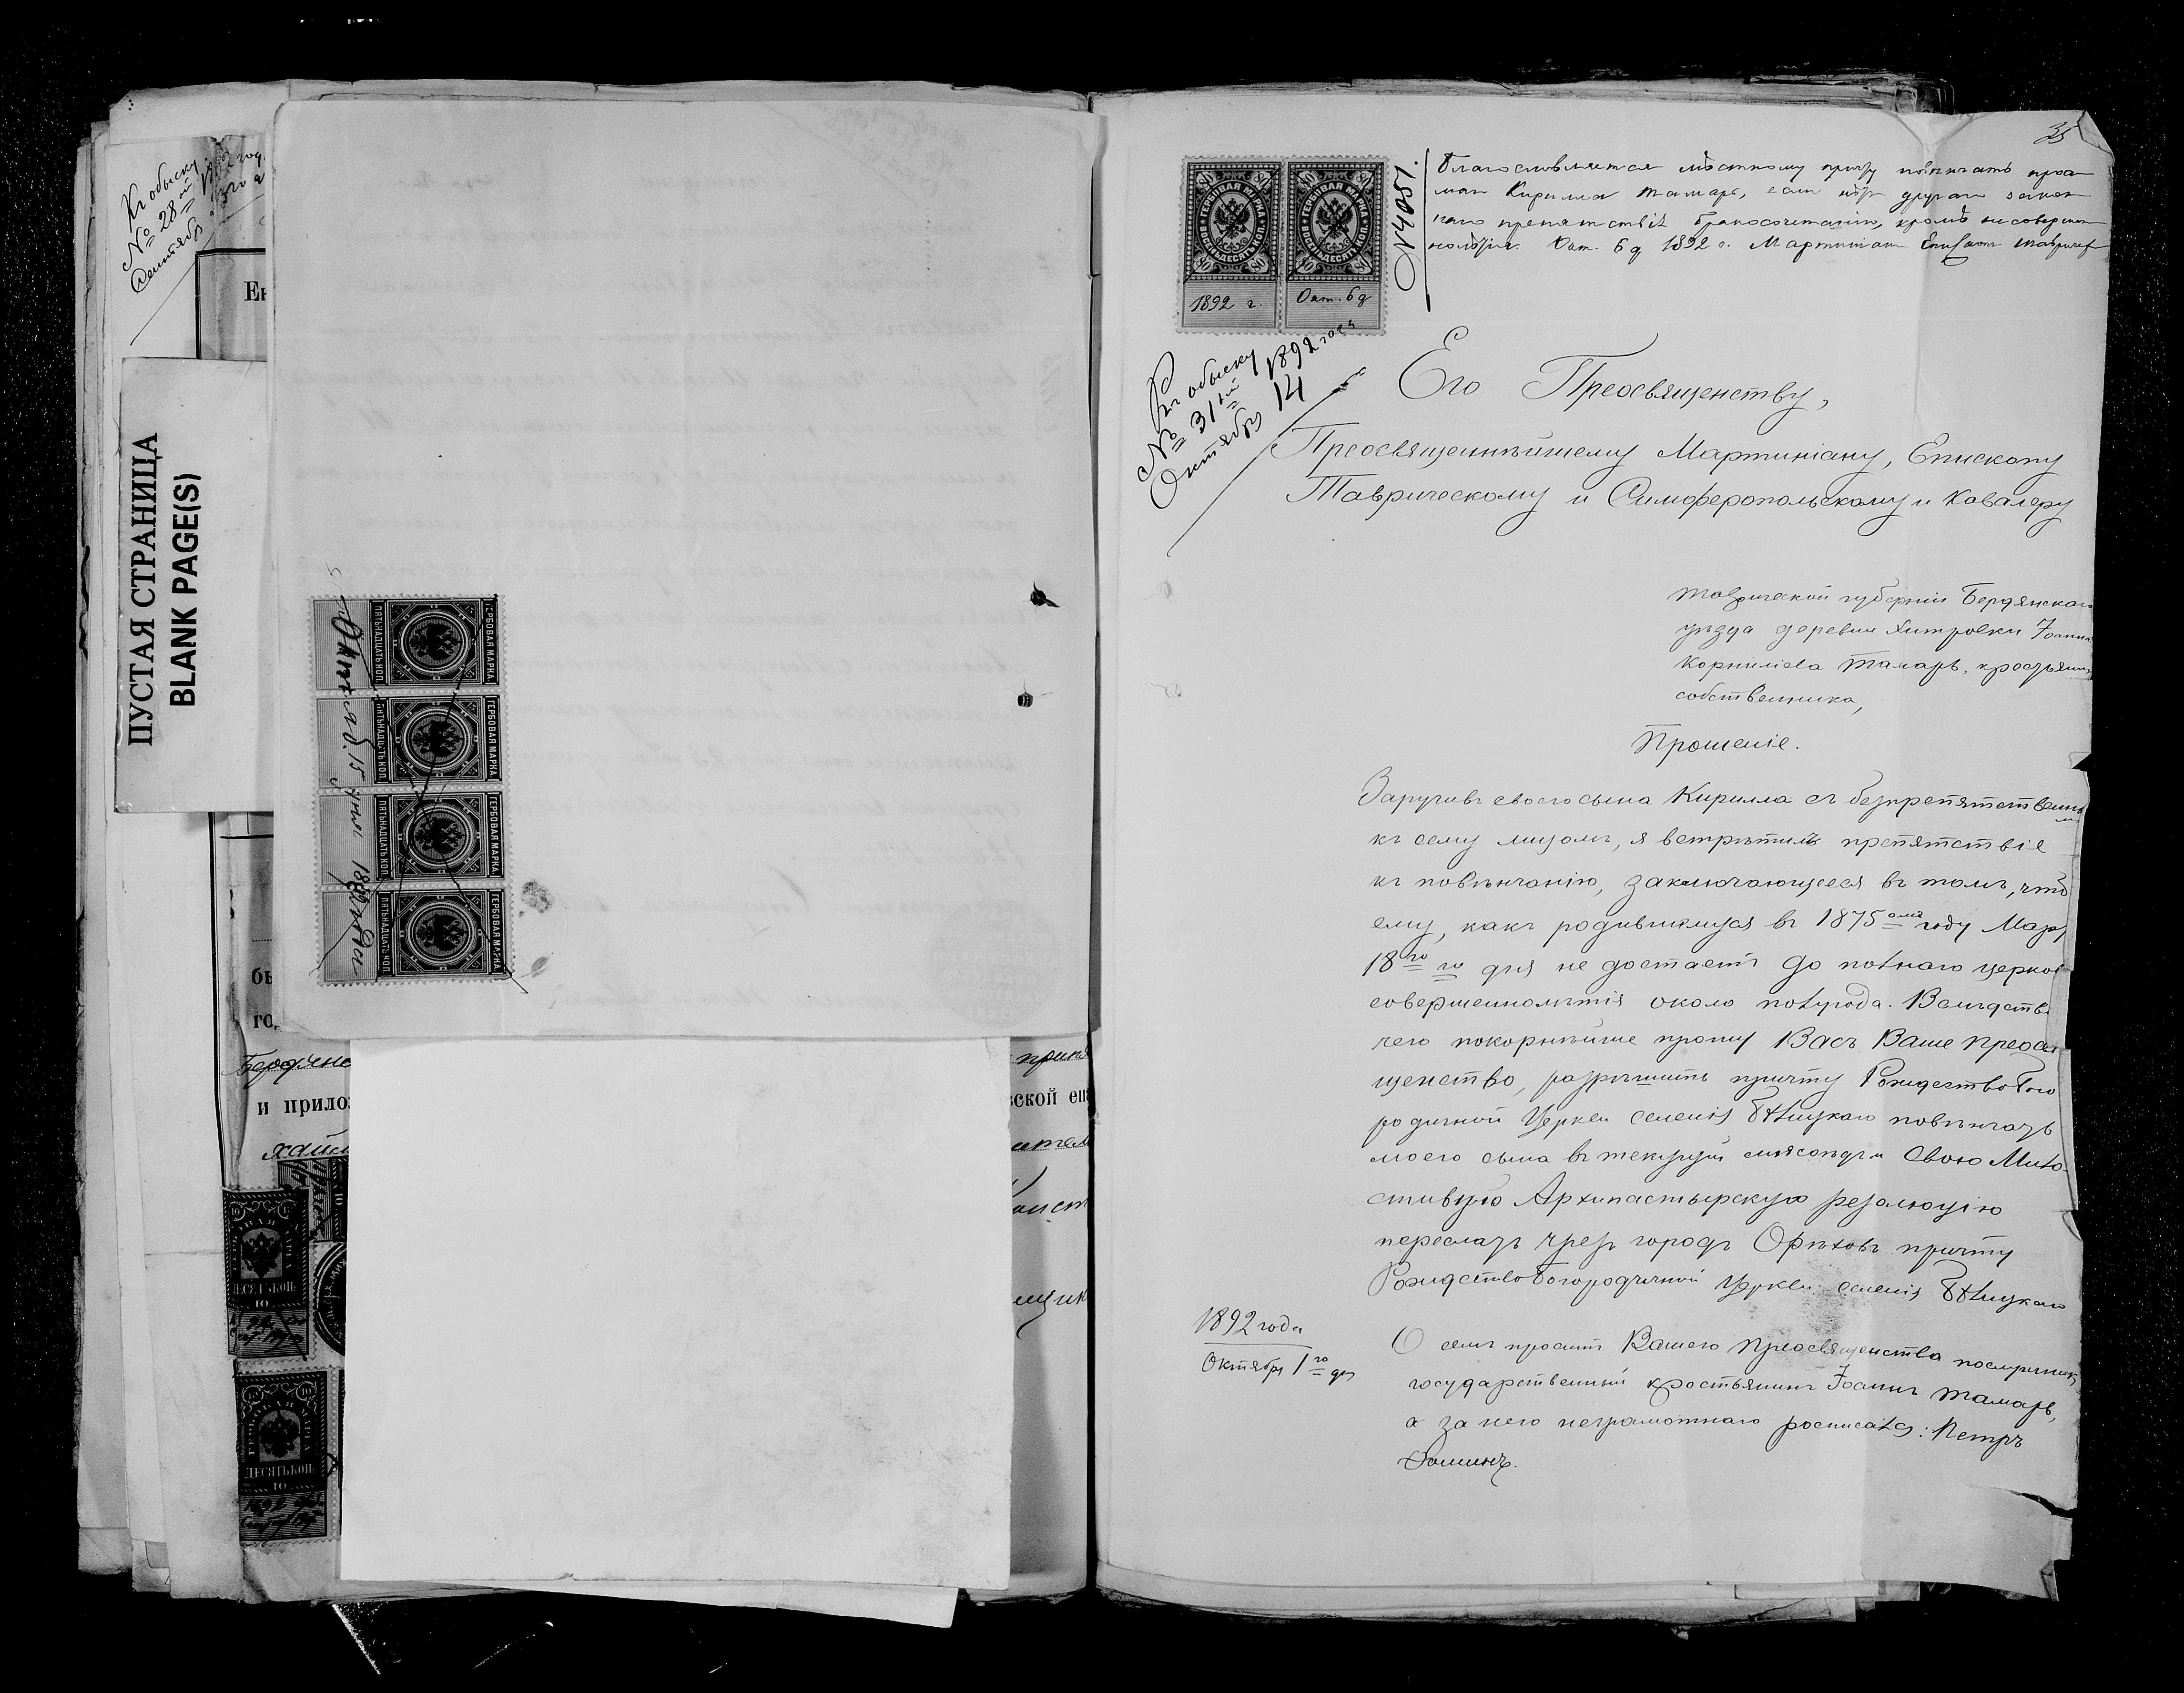 Къ обыску
№ 28ой 1892 год.
Сентябр
Ен
ПУСТАЯ СТРАНИЦА
BLANK PAGE(S)
ГЕРБОВАЯ МАРКА
ПЯТЬНАДЦАТЬ КОП.
ГЕРБОВАЯ МАРКА
ПЯТЬНАДЦАТЬ КОП.
ГЕРБОВАЯ МАРКА
ПЯТЬНАДЦАТЬ КОП.
ГЕРБОВАЯ МАРКА
ПЯТЬНАДЦАТЬ КОП.
бы
го,
Бердянс
и прило
прик
ской еп
ДЕСЯТЬ КОП.
10
ДЕСЯТЬ КОП.
10
35
ГЕРБОВАЯ МАРКА
ВОСЕМЬДЕСЯТЪ КОП.
80
ГЕРБОВАЯ МАРКА
ВОСЕМЬДЕСЯТЪ КОП.
80
1892 г.
Окт. 6 д
№4081.
Благословляется мѣстному причту повѣнчать
Кирилла Тамаръ, если нѣтъ другаго закон
наго препятствія бракосочетанію, кромѣ несовершен
нолѣтія. Окт. 6 д 1892 г. Мартиніанъ Епископъ Таврич
Къ обыску
№ 31ый 1892 года
Октября 14
Его Преосвященству,
Преосвященнѣйшему Мартиніану, Епископу
Таврическому и Симферопольскому и Кавалеру
Таврической губерніи Бердянскаго
уѣзда деревни Хитровки Іоанна
Корниліева Тамаръ, крестьянина
собственника,
Прошеніе.
Заручивъ своего сына Кирилла съ безпрепятственны
мъ
къ сему лицомъ, я встрѣтилъ препятствіе
къ повѣнчанію, заключающееся въ томъ, что
ему, какъ родившемуся въ 1875омъ году Мар
18го го дня не достаетъ до полнаго церков
совершеннолѣтія около полугода. Вслѣдств
чего покорнѣйше прошу Васъ Ваше Преосв
щенство, разрѣшить причту Рождество Бого
родичной Церкви селенія Бѣлицкаго повѣнчать
моего сына въ текущій мясоѣдъ и Свою Мило
стивую Архипастырскую резолюцію
переслать чрезъ городъ Орѣховъ причту
Рождество Богородичной Церкви селенія Бѣлицкаго
1892 года
Октября 1го дня
О семъ проситъ Вашего Преосвященства послушникъ
государственный крестьянинъ Іоаннъ Тамаръ,
а за него неграмотнаго росписался: Петръ